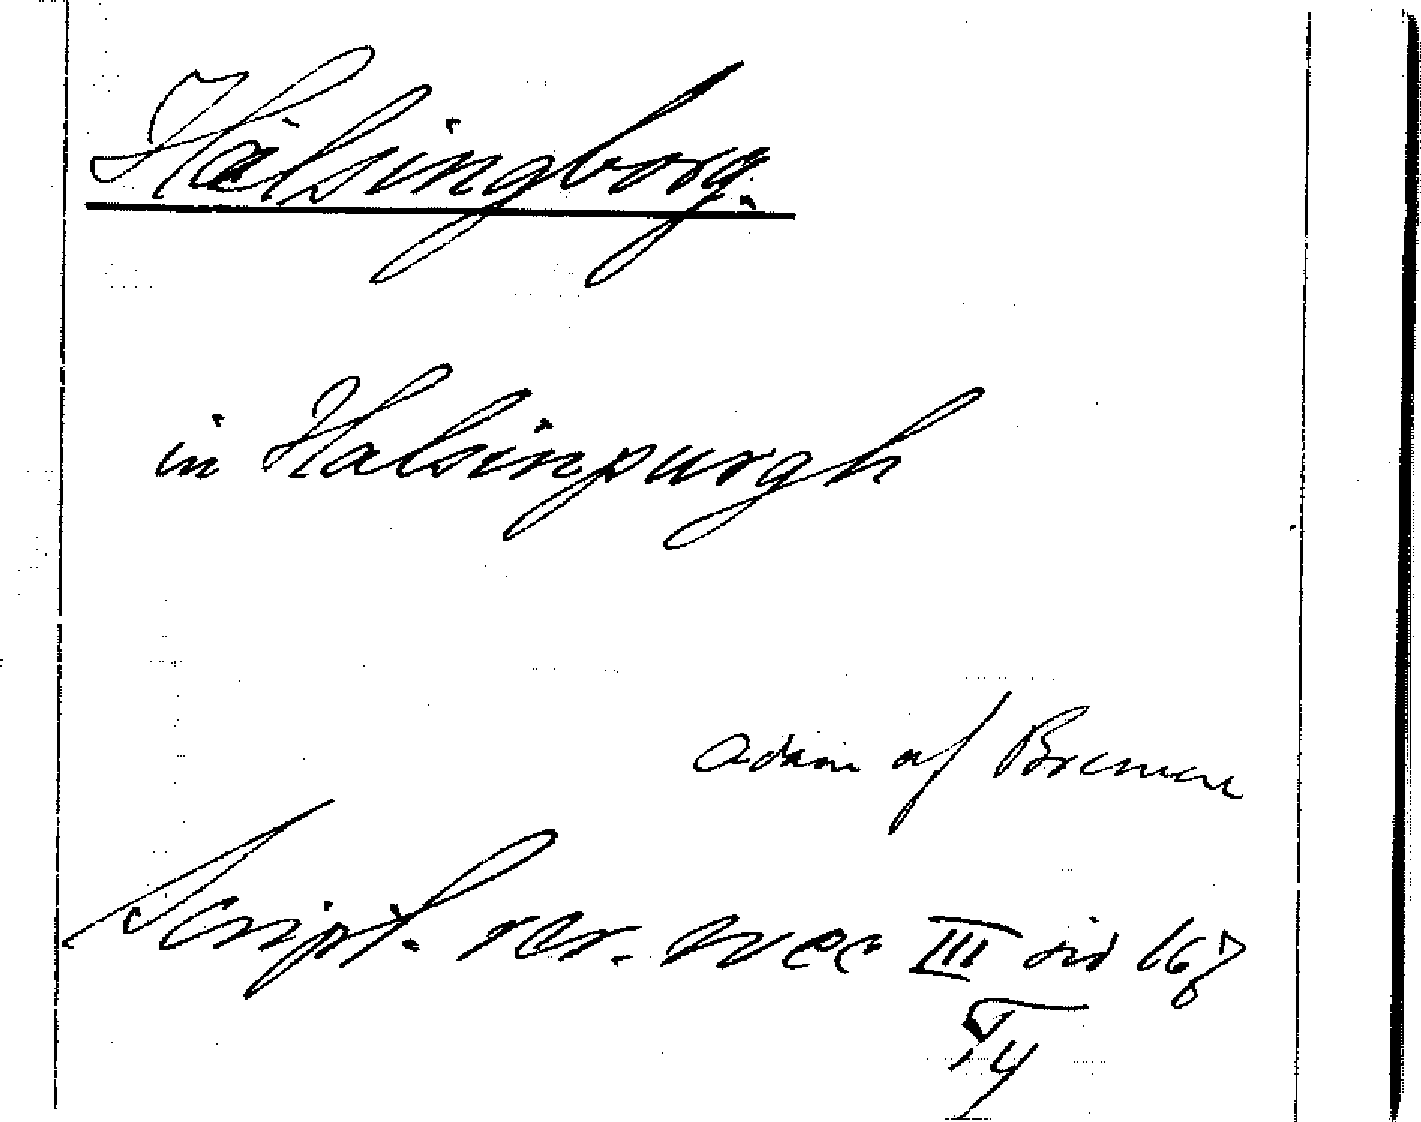 Hälsingborg.
in Halsinpurgh
Adam af Bremen
Script. rer. svec III sid 168